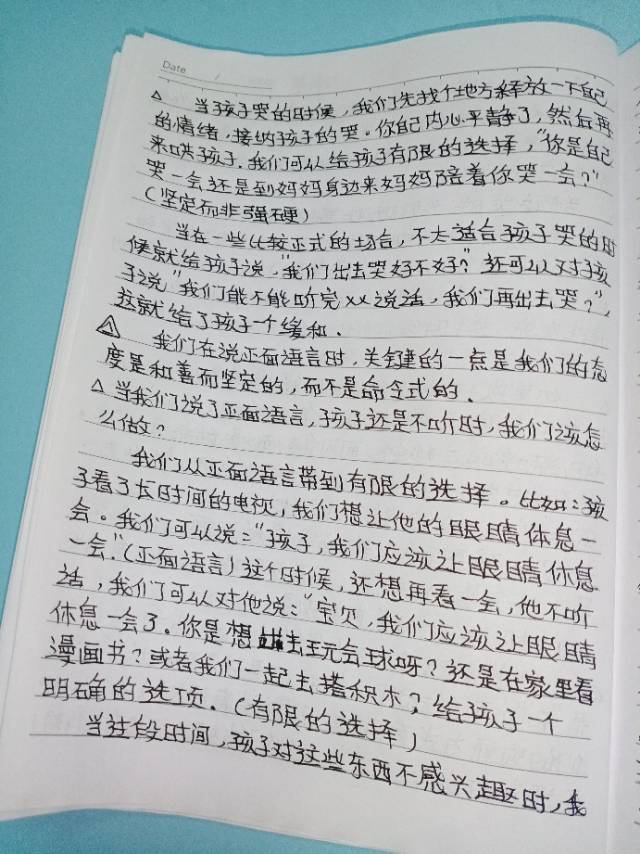 Date /
△ 当孩子哭的时候，我们先找个地方释放一下自己
的情绪，接纳孩子的哭。你自己内心平静了，然后再
来哄孩子.我们可以给孩子有限的选择，"你是自己
哭一会还是到妈妈身边来妈妈陪着你哭一会？"
（坚定而非强硬）
当在一些比较正式的场合，不太适合孩子哭的时
候就给孩子说，"我们出去哭好不好？"还可以对孩
子说"我们能不能听完XX说话，我们再出去哭？"，
这就给了孩子一个缓和.
△ 我们在说正面语言时，关键的一点是我们的态
度是和善而坚定的，而不是命令式的.
△当我们说了正面语言，孩子还是不听时，我们该怎
么做？
我们从正面语言带到有限的选择。比如：孩
子看了长时间的电视，我们想让他的眼睛体息一
会。我们可以说："孩子，我们应该让眼睛休息
一会."（正面语言）这个时候，还想再看一会，他不听
话，我们可以对他说："宝贝，我们应该让眼睛
休息一会了。你是想出去玩会球呀？还是在家里看
漫画书？或者我们一起去搭积木？给孩子一个
明确的选项.（有限的选择）
当这段时间，孩子对这些东西不感兴趣时，我